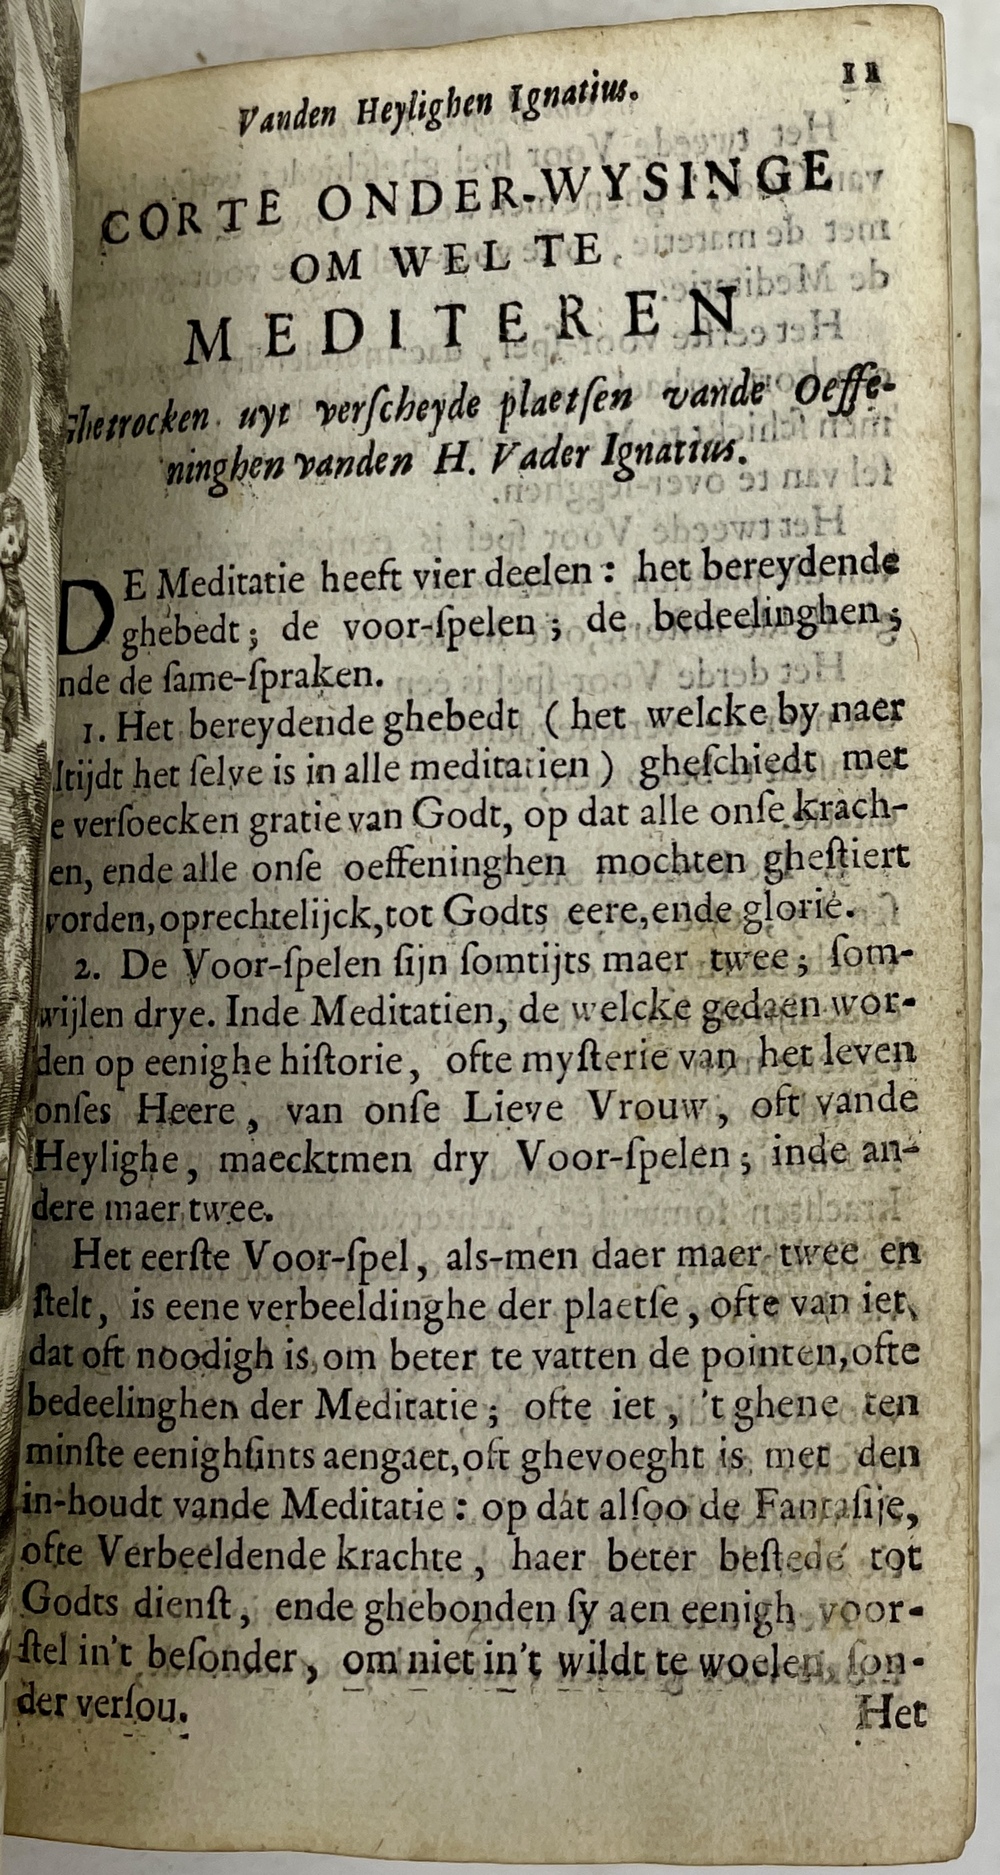 Vanden Heylighen Ignatius. 11
CORTE ONDER-WYSINGE
OM WEL TE
MEDITEREN
Ghetrocken uyt verſcheyde plaetſen vande Oeffe-
ninghen vanden H. Vader Ignatius.
DE Meditatie heeft vier deelen: het bereydende
ghebedt; de voor-ſpelen; de bedeelinghen;
nde de ſame-ſpraken.
1. Het bereydende ghebedt (het welcke by naer
ltijdt het ſelve is in alle meditatien) gheſchiedt met
e verſoecken gratie van Godt, op dat alle onſe krach-
en, ende alle onſe oeffeninghen mochten gheſtiert
vorden, oprechtelijck, tot Godts eere, ende glorie.
2. De Voor-ſpelen ſijn ſomtijts maer twee; ſom-
wijlen drye. Inde Meditatien, de welcke gedaen wor-
den op eenighe hiſtorie, ofte myſterie van het leven
onſes Heere, van onſe Lieve Vrouw, oft vande
Heylighe, maecktmen dry Voor-ſpelen; inde an-
dere maer twee.
Het eerſte Voor-ſpel, als-men daer maer twee en
ſtelt, is eene verbeeldinghe der plaetſe, ofte van iet,
dat oft noodigh is, om beter te vatten de pointen, ofte
bedeelinghen der Meditatie; ofte iet, 't ghene ten
minſte eenighſints aengaet, oft ghevoeght is met den
in-houdt vande Meditatie: op dat alſoo de Fantaſije,
ofte Verbeeldende krachte, haer beter beſtede tot
Godts dienſt, ende ghebonden ſy aen eenigh voor-
ſtel in't beſonder, om niet in't wildt te woelen ſon-
der verſou.
Het